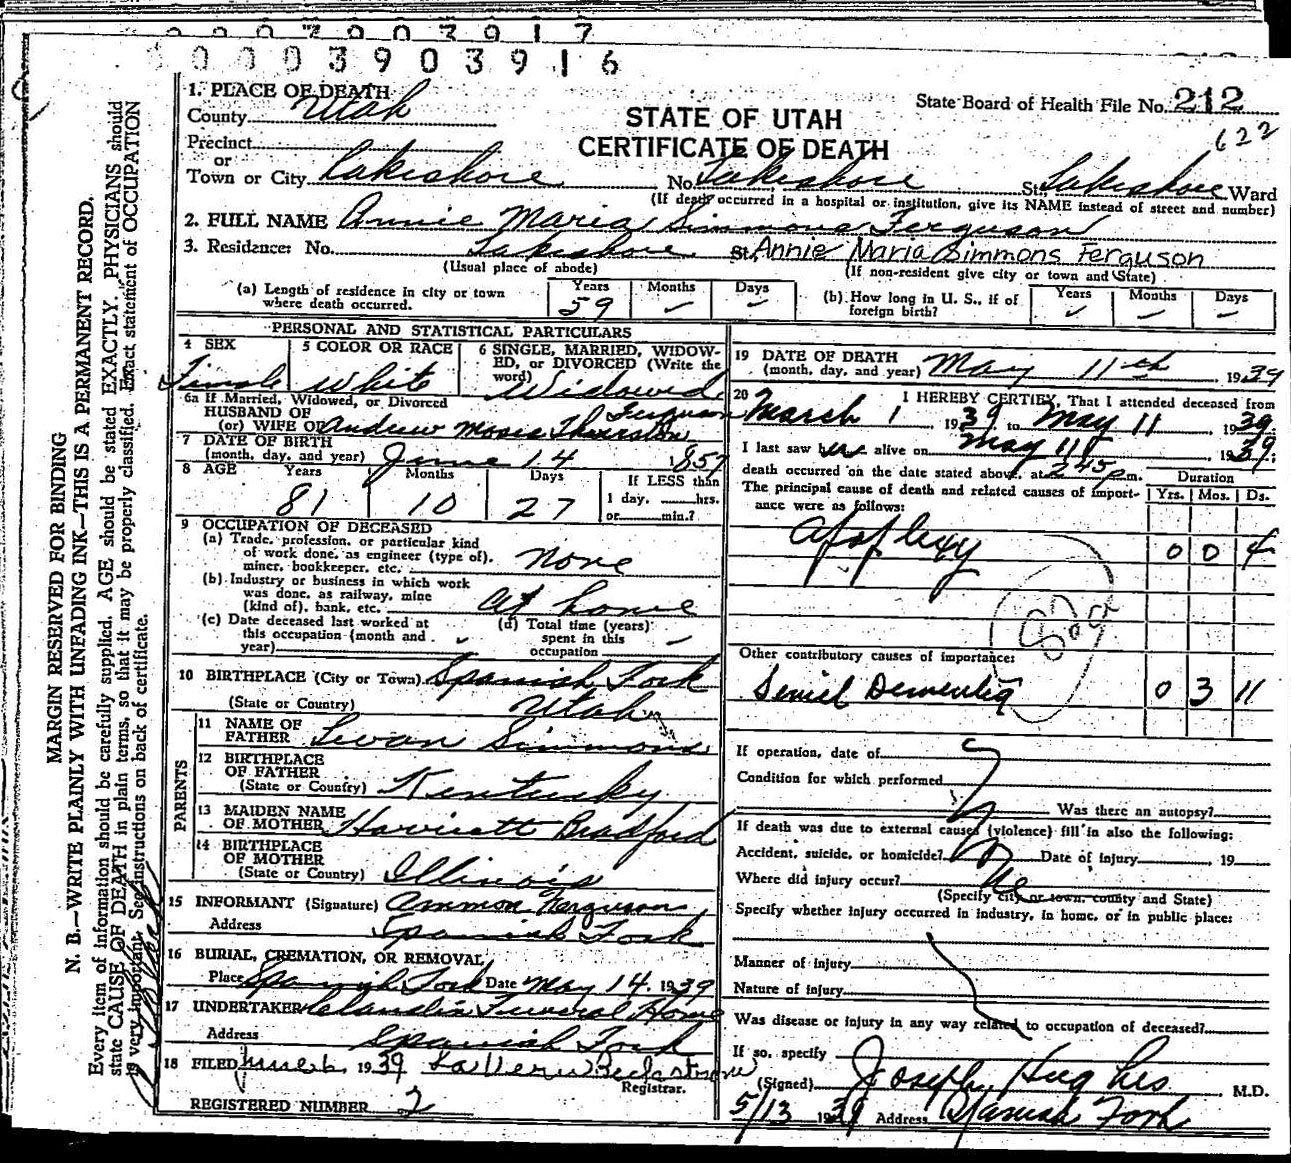 0 0 0 3 9 0 3 9 1 7
0 0 0 3 9 0 3 9 1 6
1. PLACE OF DEATH
County Utah
STATE OF UTAH
CERTIFICATE OF DEATH
State Board of Health File No. 212
622
Precinct
or
Town or City Lakeshore No. Lakeshore St. Lakeshore Ward
(If death occurred in a hospital or institution, give its NAME instead of street and number)
2. FULL NAME Annie Maria Simmons Ferguson
3. Residence: No. Lakeshore St. Annie Maria Simmons Ferguson
(Usual place of abode) (If non-resident give city or town and State)
(a) Length of residence in city or town where death occurred. Years 59 Months – Days –
(b) How long in U. S., if of foreign birth? Years Months – Days –
PERSONAL AND STATISTICAL PARTICULARS
4 SEX Female
5 COLOR OR RACE White
6 SINGLE, MARRIED, WIDOW-
ED, or DIVORCED (Write the
word) Widowed
6a If Married, Widowed, or Divorced
HUSBAND OF
(or) WIFE OF Andrew Moses Thurston Ferguson
7 DATE OF BIRTH
(month, day, and year) June 14 1857
8 AGE Years 81 Months 10 Days 27
If LESS than
1 day, hrs.
or min.?
9 OCCUPATION OF DECEASED
(a) Trade, profession, or particular kind
of work done, as engineer (type of),
miner, bookkeeper, etc. None
(b) Industry or business in which work
was done, as railway, mine
(kind of), bank, etc. At home
(c) Date deceased last worked at
this occupation (month and
year)
(d) Total time (years)
spent in this
occupation –
10 BIRTHPLACE (City or Town) Spanish Fork
(State or Country) Utah
PARENTS
11 NAME OF
FATHER Levan Simmons
12 BIRTHPLACE
OF FATHER
(State or Country) Kentucky
13 MAIDEN NAME
OF MOTHER Harriett Bradford
14 BIRTHPLACE
OF MOTHER
(State or Country) Illinois
15 INFORMANT (Signature) Ammon Ferguson
Address Spanish Fork
16 BURIAL, CREMATION, OR REMOVAL
Place Spanish Fork Date May 14, 1939
17 UNDERTAKER Claudin Funeral Home
Address Spanish Fork
18 FILED June 6 1939 LaVern
Registrar.
REGISTERED NUMBER 2
19 DATE OF DEATH
(month, day, and year) May 11th 1939
20 I HEREBY CERTIFY, That I attended deceased from
March 1 1939, to May 11 1939.
I last saw her alive on May 11 1939.;
death occurred on the date stated above, at 2 45 p m.
The principal cause of death and related causes of import-
ance were as follows:
Duration
Yrs. Mos. Ds.
Apoplexy 0 0 4
Other contributory causes of importance:
Senile Dementia 0 3 11
If operation, date of
Condition for which performed
Was there an autopsy?
If death was due to external causes (violence) fill in also the following:
Accident, suicide, or homicide? no Date of injury , 19
Where did injury occur?
(Specify city or town, county and State)
Specify whether injury occurred in industry, in home, or in public place:
Manner of injury
Nature of injury
Was disease or injury in any way related to occupation of deceased?
If so, specify
(Signed) Joseph Hughes, M.D.
5/13 1939 Address Spanish Fork
MARGIN RESERVED FOR BINDING
N. B.—WRITE PLAINLY WITH UNFADING INK—THIS IS A PERMANENT RECORD.
Every item of information should be carefully supplied. AGE should be stated EXACTLY. PHYSICIANS should
state CAUSE OF DEATH in plain terms, so that it may be properly classified. Exact statement of OCCUPATION
is very important. See instructions on back of certificate.